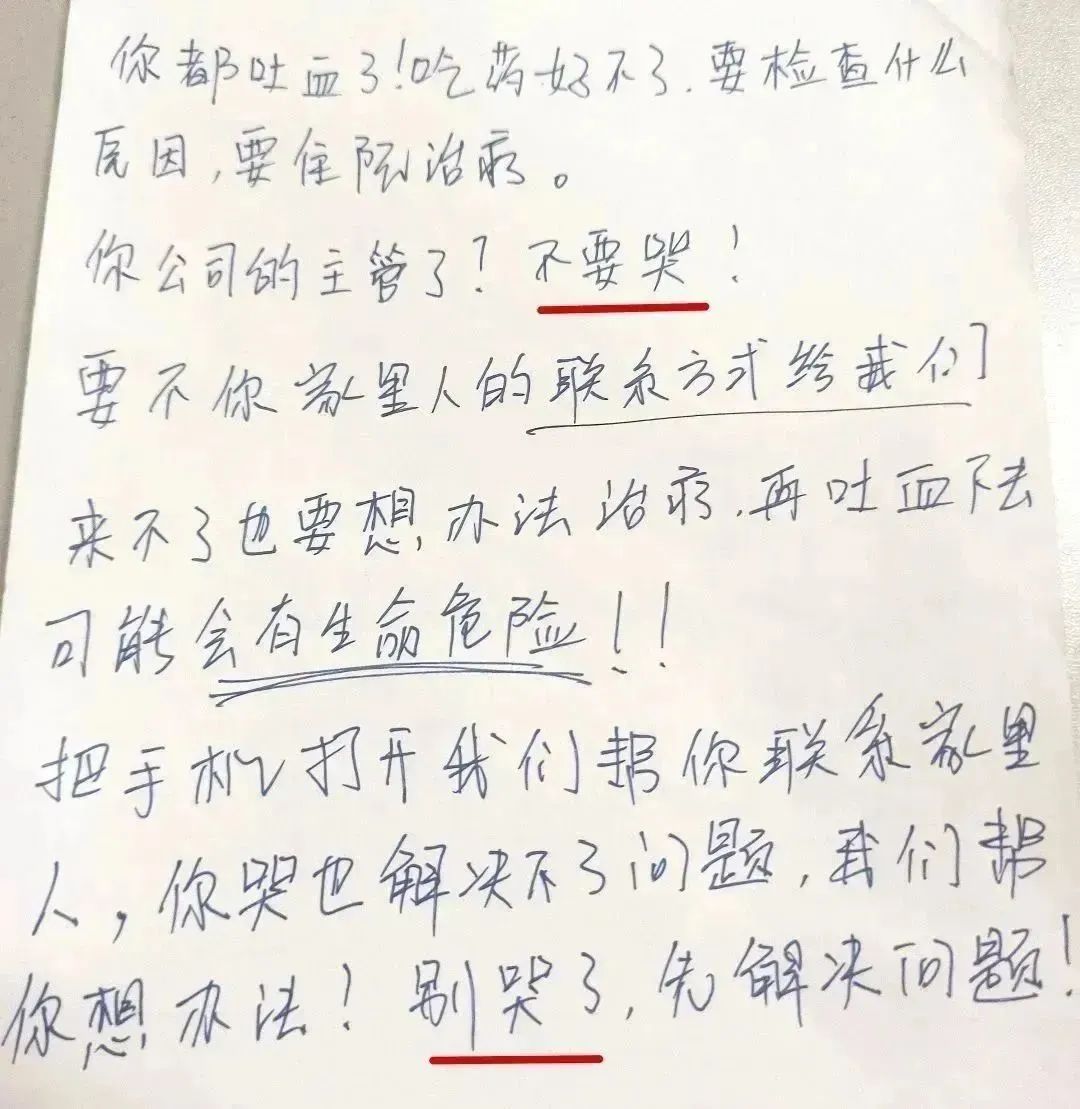 你都吐血了!吃药好不了.要检查什么
原因,要住院治疗。
你公司的主管了?不要哭!
要不你家里人的联系方式给我们
来不了也要想办法治疗.再吐血下去
可能会有生命危险!!
把手机打开我们帮你联系家里
人,你哭也解决不了问题,我们帮
你想办法!别哭了,先解决问题!